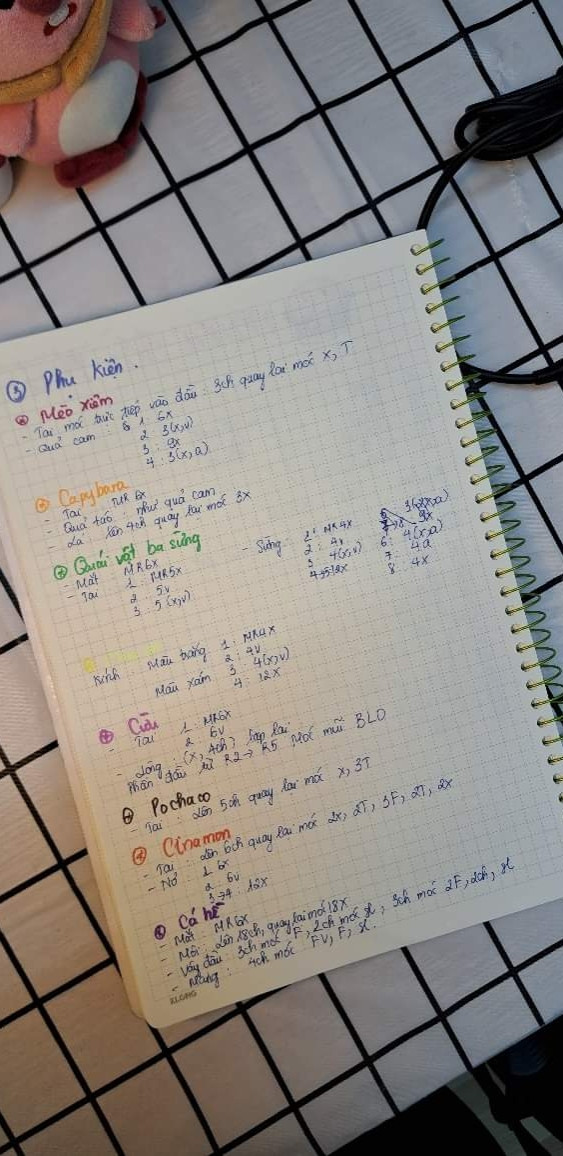 ③ Phụ kiện.
Mèo xiêm
- Tai móc trực tiếp vào đầu: 3ch quay lại móc X, T
- Quả cam: 1 6X
2 3(X,V)
3: 9X
4: 3(X,A)
Capybara
- Tai MR 6X
- Quả táo: như quả cam
- Lá lên 4ch quay lại móc 3X
Quái vật ba sừng
- Mắt MR6X
- Tai 1: MR5X
2 5V
3: 5(X,V)
- Sừng: 1: MR4X
2: 4V
3: 4(X,V)
6: 4(X,A)
7: 4A
8: 4X
Kính: Màu trắng 1: MR4X
2: 4V
3: 4(X,V)
Màu xám 4: 12X
Cừu
- Tai 1: MR6X
2 6V
- Lông (X, 4ch) lặp lại
Phần đầu từ R2→R5 Móc mũi BLO
Pochaco
- Tai: Lên 5ch quay lại móc X, 3T
Cinamon
- Tai: Lên 6ch quay lại móc 2X, 2T, 3F, 2T, 2X
- Nơ 1 6X
2 6V
3→7: 12X
Cá hề
- Mắt MR6X
- Môi: Lên 18ch, quay lại móc 18X
- Vây đầu: 3ch móc F, 2ch móc sl, 3ch móc 2F, 2ch, sl
- Mang: 4ch móc FV, F, sl.
KLONG